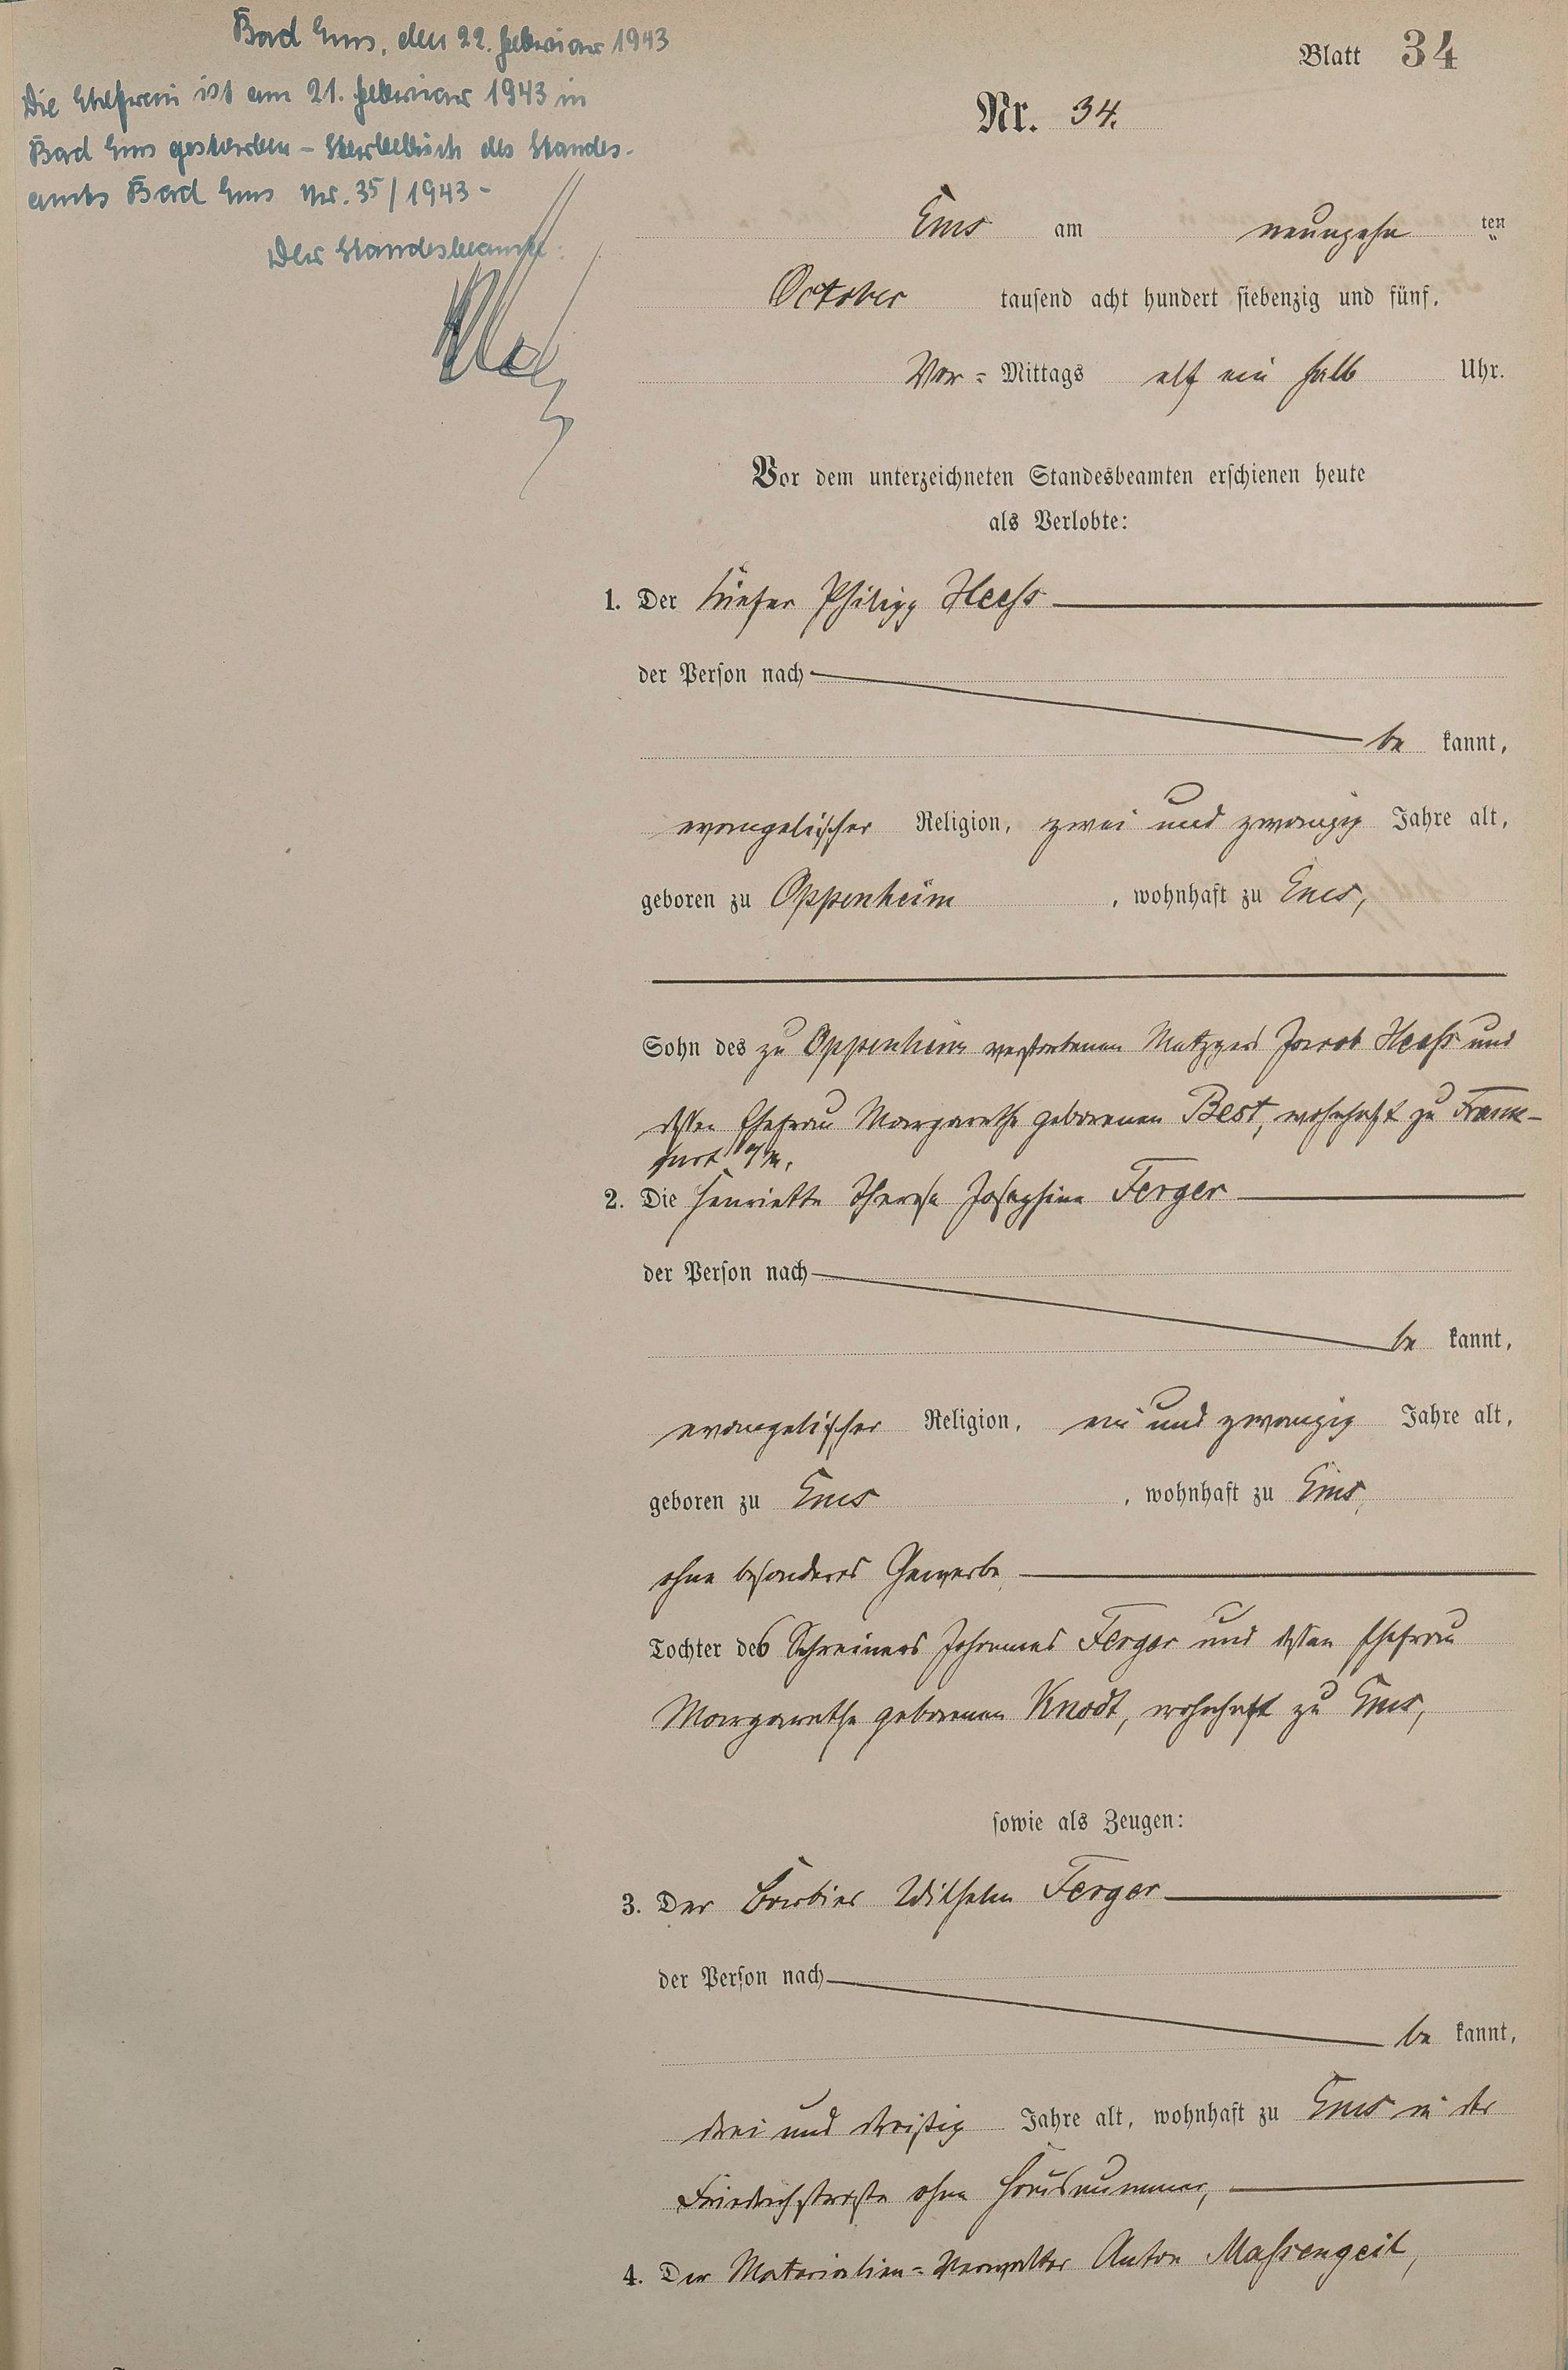 Bad Ems, den 22. Februar 1943
Die Ehefrau ist am 21. Februar 1943 in
Bad Ems gestorben – Sterbebuch des Standes-
amts Bad Ems Nr. 35/1943 –
Der Standesbeamte:
Blatt 34
Nr. 34.
Ems am neunzehn ten
October tausend acht hundert siebenzig und fünf.
Vor = Mittags elf ein halb Uhr.
Vor dem unterzeichneten Standesbeamten erschienen heute
als Verlobte:
1. Der Küfer Philipp Heeß
der Person nach
be kannt,
evangelischer Religion, zwei und zwanzig Jahre alt,
geboren zu Oppenheim, wohnhaft zu Ems,
Sohn des zu Oppenheim verstorbenen Metzgers Jacob Heeß und
dessen Ehefrau Margarethe geborenen Best, wohnhaft zu Frank-
furt a/M.
2. Die Henriette Therese Josephine Ferger
der Person nach
be kannt,
evangelischer Religion, ein und zwanzig Jahre alt,
geboren zu Ems, wohnhaft zu Ems,
ohne besonderes Gewerbe
Tochter des Schreiners Johannes Ferger und dessen Ehefrau
Margarethe geborenen Knodt, wohnhaft zu Ems,
sowie als Zeugen:
3. Der Barbier Wilhelm Ferger
der Person nach
be kannt,
drei und dreißig Jahre alt, wohnhaft zu Ems in der
Friedrichstraße ohne Hausnummer,
4. Der Materialien-Verwalter Anton Maßengeil,